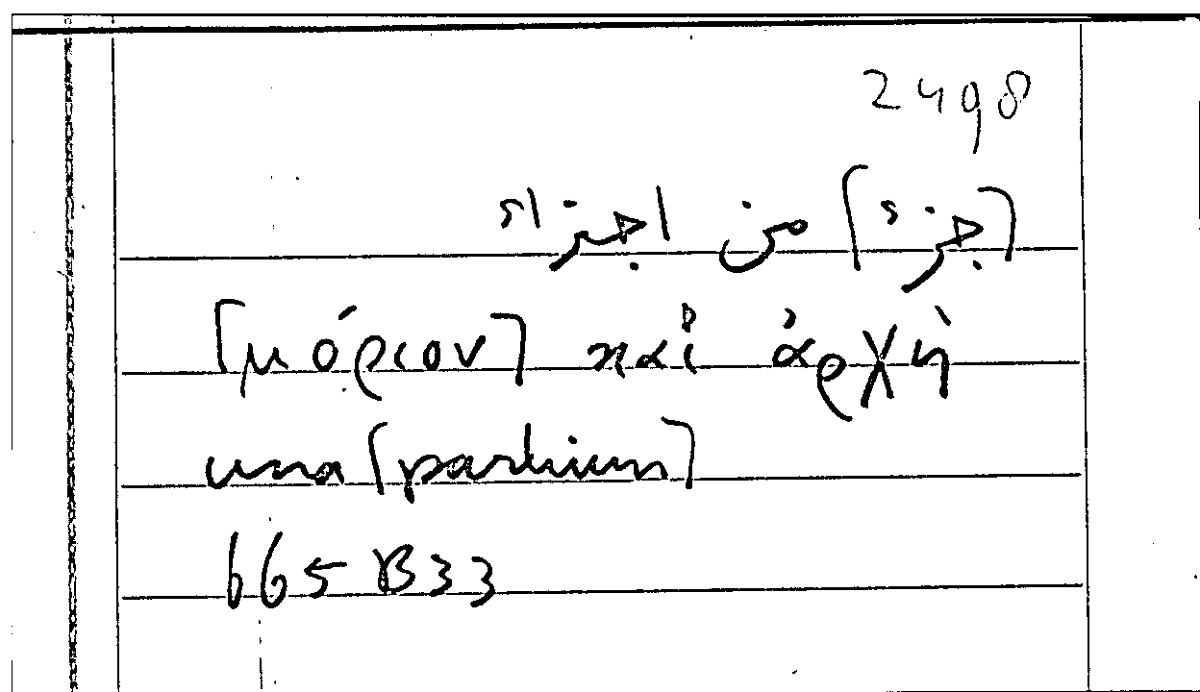 2498
[جزء] من اجزاء
[μόριον] καὶ ἀρχή
una [partium]
665 B33